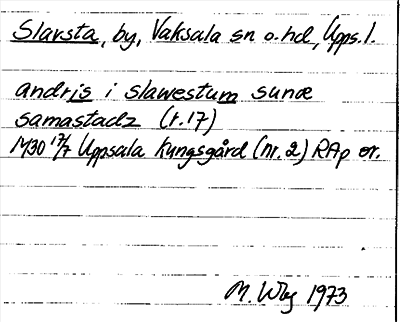 Slavsta, by, Vaksala sn o. hd, Upps. l.
andris i slawestum sunæ
samastadz (r. 17)
1430 17/7 Uppsala kungsgård (nr. 2) RAp or.
M. Wbg 1973